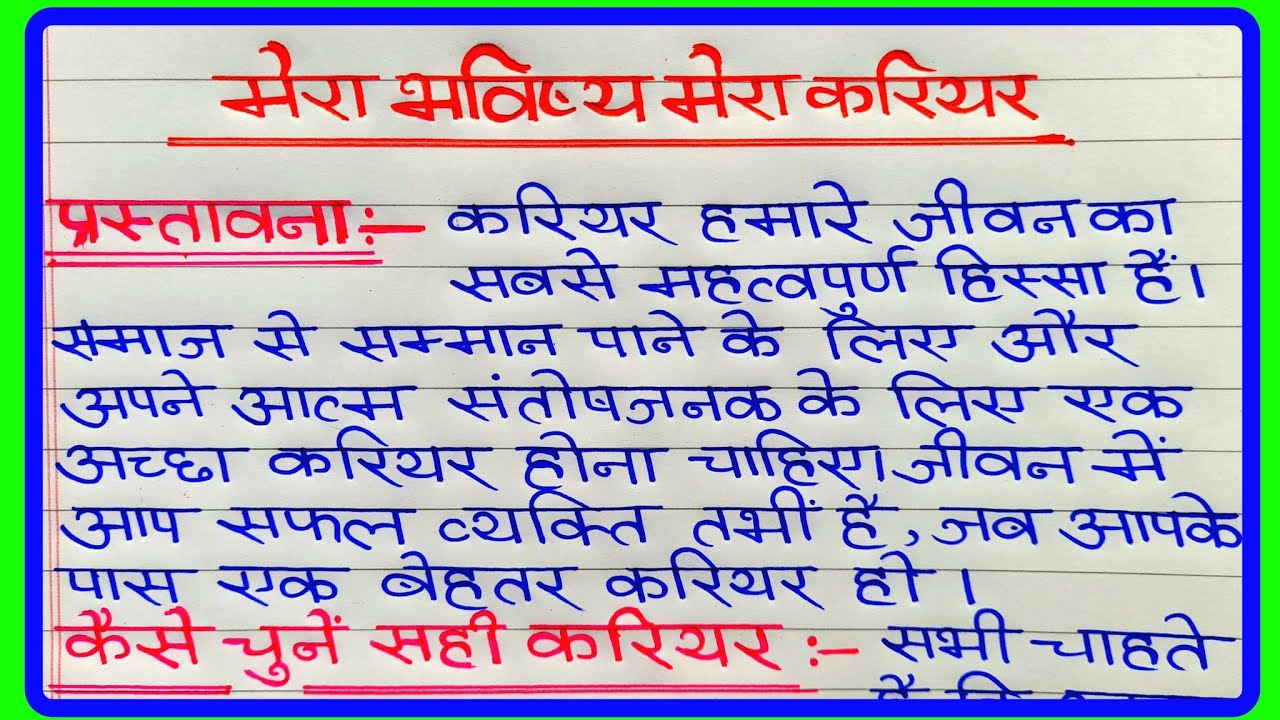 मेरा भविष्य मेरा करियर
प्रस्तावना:- करियर हमारे जीवन का
सबसे महत्वपुर्ण हिस्सा हैं।
समाज से सम्मान पाने के लिए और
अपने आत्म संतोषजनक के लिए एक
अच्छा करियर होना चाहिए।जीवन में
आप सफल व्यक्ति तभीं है, जब आपके
पास एक बेहतर करियर हो ।
कैसे चुनें सही करियर :- सभी चाहते